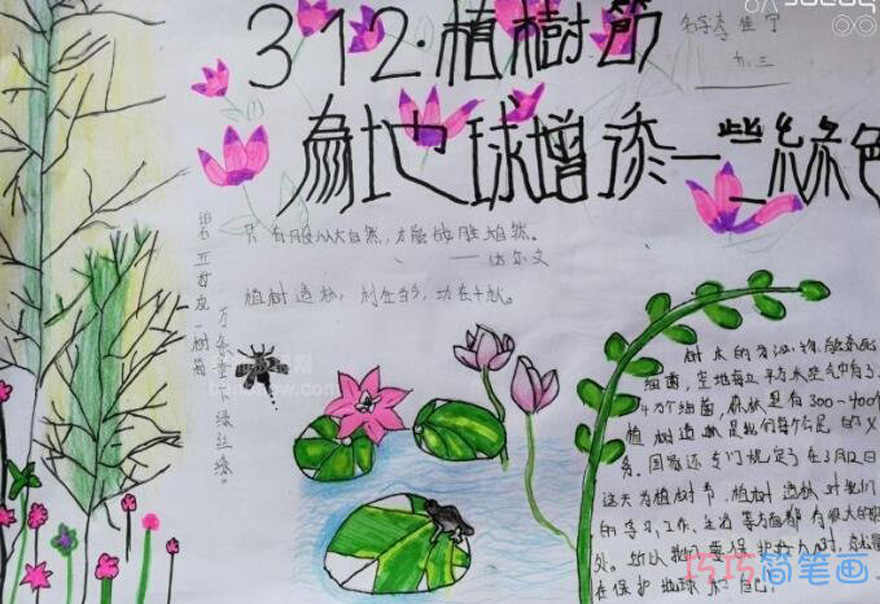 312·植樹節
名字李佳宁
九.三
為地球增添一些綠色
只有服从大自然,方能战胜自然。
——达尔文
植树造林,利在当今,功在千秋。
碧玉妆成一树高
万条垂下绿丝绦。
树木的分泌物能杀死
细菌,空地每立平方米空气中有3
4万个细菌,森林里有300~400个
植树造林是我们每个公民的义
务。国家还专门规定了在3月12日
这天为植树节.植树造林对我们
的学习,工作、生活等方面都有很大的
处。所以我们要保护
在保护地球和自己!
巧巧简笔画